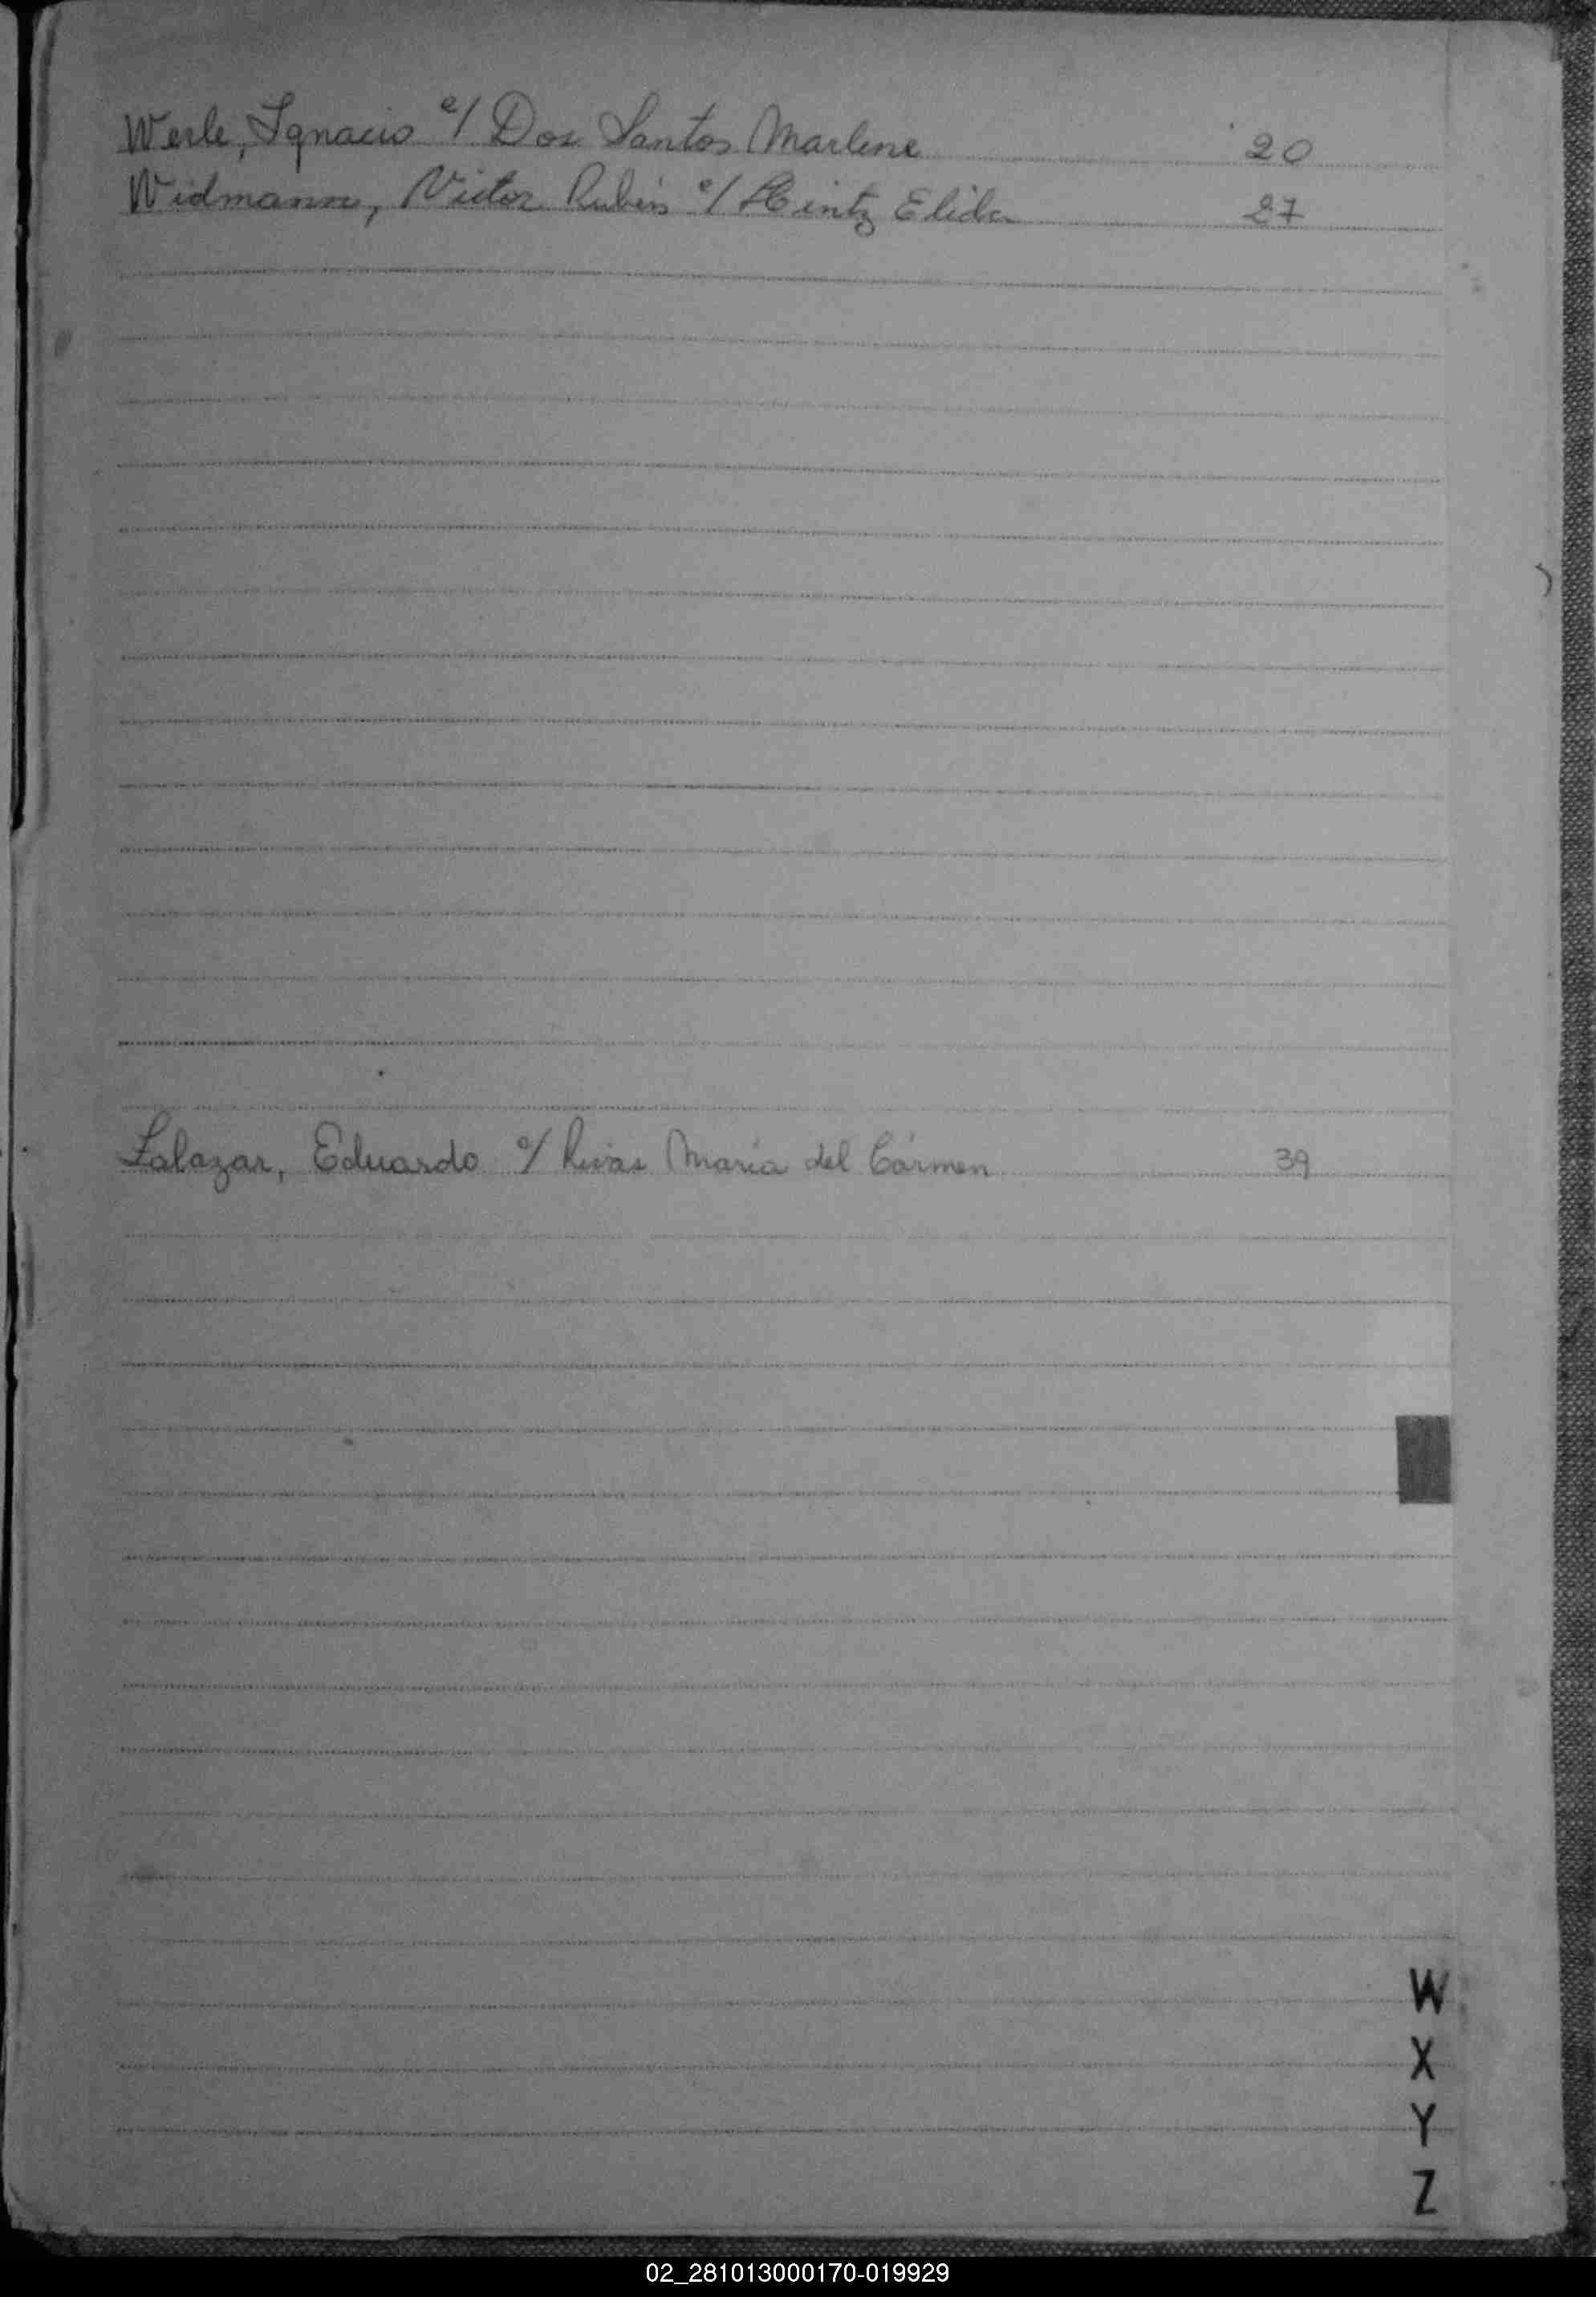 Werle, Ignacio c/ Dos Santos Marlene 20
Widmann, Victor Rubén c/ Hintz Elida 27
Salazar, Eduardo c/ Rivas María del Cármen 39
W
X
Y
Z
02_281013000170-019929